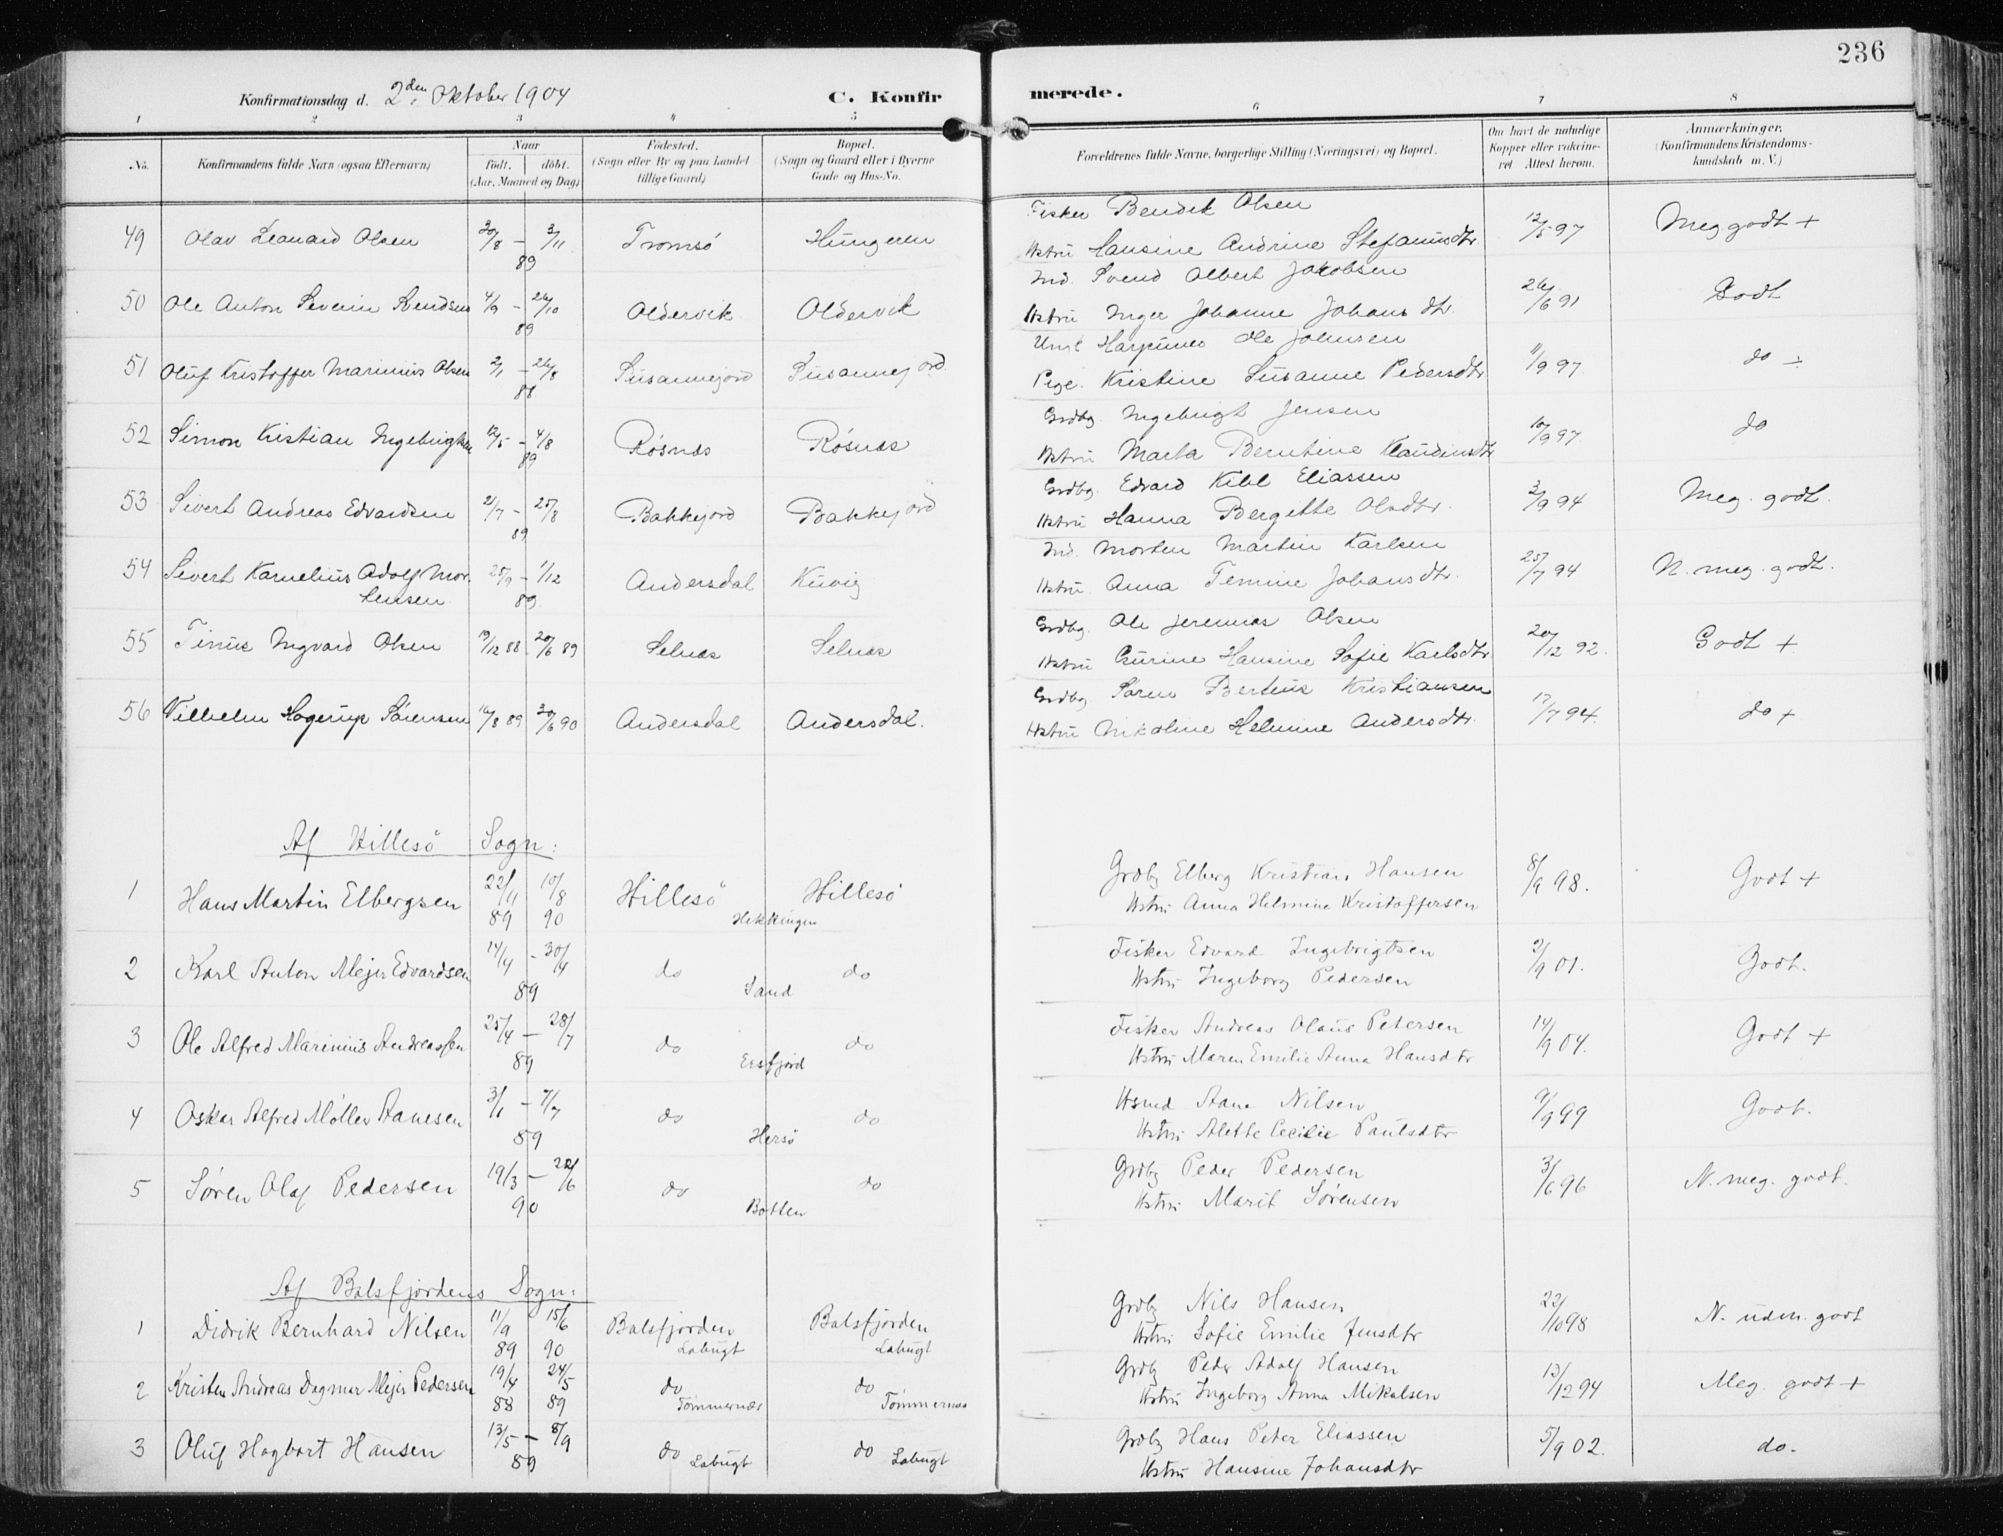 236
Konfirmationsdag d. 2den Oktober 1904 C. Konfirmerede.
1 2 3 4 5 6 7 8
No. Konfirmandens fulde Navn (ogsaa Efternavn) Naar født. døbt. (Aar, Maaned og Dag) Fødested. (Sogn eller By og paa Landet tillige Gaard) Bopæl. (Sogn og Gaard eller i Byerne Gade og Hus-No. Forældrenes fulde Navne, borgerlige Stilling (Næringsvei) og Bopæl. Om havt de naturlige Kopper eller vakcineret Attest herom. Anmærkninger. (Konfirmandens Kristendomskundskab m. V.)
49 Olav Leonard Olsen 20/8 – 3/11 89 Tromsø Hungeren Fisker Bendik Olsen
Hstru Hansine Andrine Stefanusdtr 12/5 97 Meg godt +
50 Ole Anton Severin Svendsen 4/9 – 26/10 89 Oldervik Oldervik Ind. Svend Albert Jakobsen
Hstru Inger Johanne Johansdtr. 26/6 91 Godt
51 Oluf Kristoffer Marinius Olsen 2/1 – 26/8 88 Susannejord Susannejord Ole Johnsen
Pige. Kristine Susanne Pedersdtr 11/9 97 do ÷
52 Simon Kristian Ingebrigtsen 12/5 – 4/8 89 Røsnæs Røsnæs Grdbg. Ingebrigt Jensen
Hstru Marta Berntine Klaudiusdtr 10/9 97 do
53 Sivert Andreas Edvardsen 21/7 – 25/8 89 Bakkejord Bakkejord Grdbg. Edvard Kibl Eliassen
Hstru Hanna Bergitte Olsdtr. 3/9 94 Meg. godt.
54 Sivert Kornelius Adolf Mortensen 25/9 – 1/12 89 Andersdal Kuvig Ind. Morten Martin Karlsen
Hstru. Anna Temine Johansdtr. 25/7 94 N. meg. godt.
55 Tinus Ingvard Olsen 19/12 88 – 20/6 89 Selnæs Selnæs Grdbg. Ole Jeremias Olsen
Hstru Gurine Hansine Sofie Karlsdtr. 20/12 92. Godt +
56 Vilhelm Hagerup Sørensen 16/8 89 30/6 90 Andersdal Andersdal. Grdbg Søren Bertius Kristiansen
Hstru Nikoline Helmine Andersdtr. 17/7 94. do +
Af Hillesø Sogn:
1 Hans Martin Elbergsen 22/11 89 10/8 90 Hillesø Hillesø Hekkingen Grdbg Elberg Kristian Hansen
Hstru Anna Helmine Kristoffersen 8/9 98. Godt +
2 Karl Anton Mejer Edvardsen 14/4 – 30/4 89 do do Sand Fisker Edvard Ingebrigtsen
Hstru Ingeborg Pedersen 2/9 01. Godt.
3 Ole Alfred Marinius Andreassen 25/4 – 28/7 89 do do Ersfjord Fisker Andreas Olaus Petersen
Hstru Maren Emilie Anna Hansdtr 14/9 04. Godt +
4 Oskar Alfred Møller Aanesen 3/1 – 7/7 89 do do Hersø Hsmd Aane Nilsen
Hstru Alette Cecilie Paulsdtr 9/9 99 Godt.
5 Søren Olaf Pedersen 19/3 – 22/6 90 do do Botten Grdbg Peder Pedersen
Hstru Marit Sørensen 3/6 96 N. meg. godt.
Af Balsfjordens Sogn:
1 Didrik Bernhard Nilsen 11/9 89 15/6 90 Balsfjorden Labugt Balsfjorden Labugt Grdbg Nils Hansen
Hstru Sofie Emilie Jensdtr 22/10 98 N. udm. godt
2 Kristen Andreas Dagmar Mejer Pedersen 19/4 88 24/5 89 do Tømmernæs do Tømmernæs Grdbg Peder Adolf Hansen
Hstru Ingeborg Anna Mikalsen 13/12 94 Meg. godt +
3 Oluf Hagbart Hansen 13/5 – 8/9 89 do Labugt do Labugt Grdbg Hans Peter Eliassen
Hstru Hansine Johansdtr 5/9 02. do.